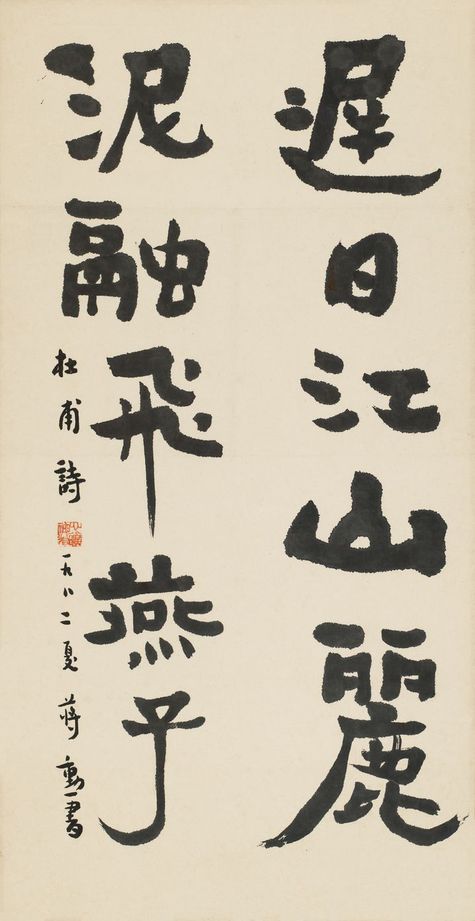 遲日江山麗
泥融飛燕子
杜甫詩
一九八二夏 蔣勳書